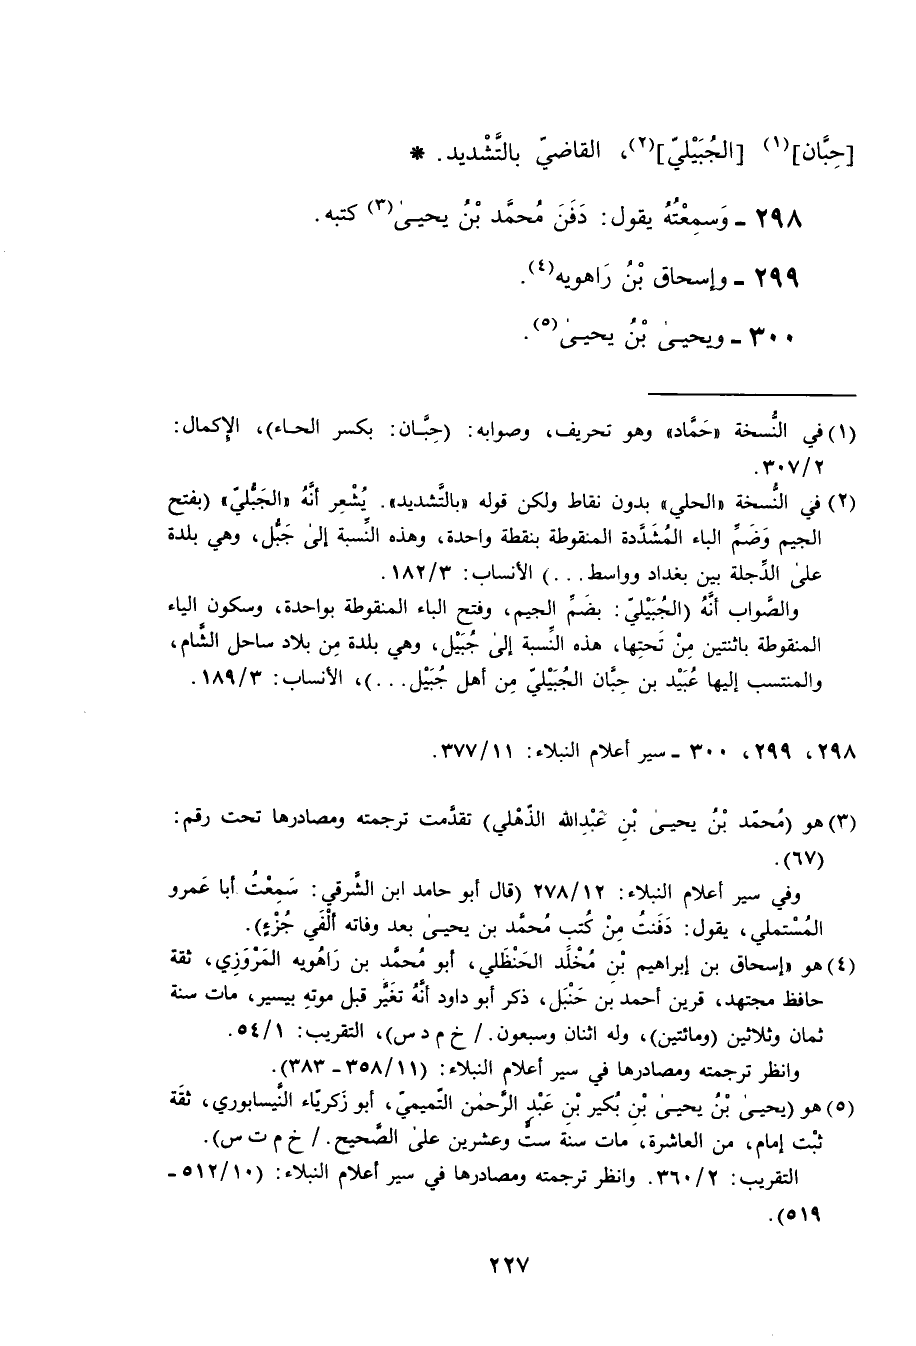 [حِبَّان]⁽¹⁾ [الجُبَيْليّ]⁽²⁾، القاضيّ بالتَّشْديد. *
٢٩٨ ـ وَسمِعْتُهُ يقول: دَفَنَ مُحمَّد بْنُ يحيىٰ⁽٣⁾ كتبه.
٢٩٩ ـ وإسحاق بْنُ رَاهويه⁽٤⁾.
٣٠٠ ـ ويحيىٰ بْنُ يحيىٰ⁽٥⁾.
(١) في النُّسخة «حَمَّاد» وهو تحريف، وصوابه: (حِبَّان: بكسر الحاء)، الإكمال:
٣٠٧/٢.
(٢) في النُّسخة «الحلي» بدون نقاط ولكن قوله «بالتَّشديد». يُشْعِر أنَّهُ «الجَبُّليّ» (بفتح
الجيم وَضَمِّ الباء المُشَدَّدة المنقوطة بنقطة واحدة، وهذه النِّسبة إلىٰ جَبُّل، وهي بلدة
علىٰ الدِّجلة بين بغداد وواسط...) الأنساب: ١٨٢/٣.
والصَّواب أنَّهُ (الجُبَيْليّ: بضَمِّ الجيم، وفتح الباء المنقوطة بواحدة، وسكون الياء
المنقوطة باثنتين مِنْ تَحتِها، هذه النِّسبة إلىٰ جُبَيْل، وهي بلدة مِن بلاد ساحل الشَّام،
والمنتسب إليها عُبَيْد بن حِبَّان الجُبَيْليّ مِن أهل جُبَيْل...)، الأنساب: ١٨٩/٣.
٢٩٨، ٢٩٩، ٣٠٠ ـ سير أعلام النبلاء: ٣٧٧/١١.
(٣) هو (مُحمّد بْنُ يحيىٰ بْنِ عَبْدِالله الذّهْلي) تقدَّمت ترجمته ومصادرها تحت رقم:
(٦٧).
وفي سير أعلام النبلاء: ٢٧٨/١٢ (قال أبو حامد ابن الشَّرقي: سَمِعْتُ أبا عَمرو
المُسْتملي، يقول: دَفَنتُ مِنْ كُتبِ مُحمَّد بن يحيىٰ بعد وفاته ألْفَي جُزْءٍ).
(٤) هو «إسحاق بن إبراهيم بْنِ مُخْلَد الحَنْظَلي، أبو مُحمَّد بن رَاهُويه المَرْوَزي، ثقة
حافظ مجتهد، قرين أحمد بن حَنْبَل، ذكر أبو داود أنَّهُ تغَيَّر قبل موتهِ بيسير، مات سنة
ثمان وثلاثين (ومائتين)، وله اثنان وسبعون. / خ م د س)، التقريب: ٥٤/١.
وانظر ترجمته ومصادرها في سير أعلام النبلاء: (٣٥٨/١١ ـ ٣٨٣).
(٥) هو (يحيىٰ بْنُ يحيىٰ بْنِ بُكير بْنِ عَبْدِ الرَّحمٰن التَّميميّ، أبو زَكريّاء النَّيسابوري، ثقَة
ثبْت إمام، من العاشرة، مات سنة ستٍّ وعشرين علىٰ الصَّحيح. / خ م ت س).
التقريب: ٣٦٠/٢. وانظر ترجمته ومصادرها في سير أعلام النبلاء: (٥١٢/١٠ ـ
٥١٩).
٢٢٧